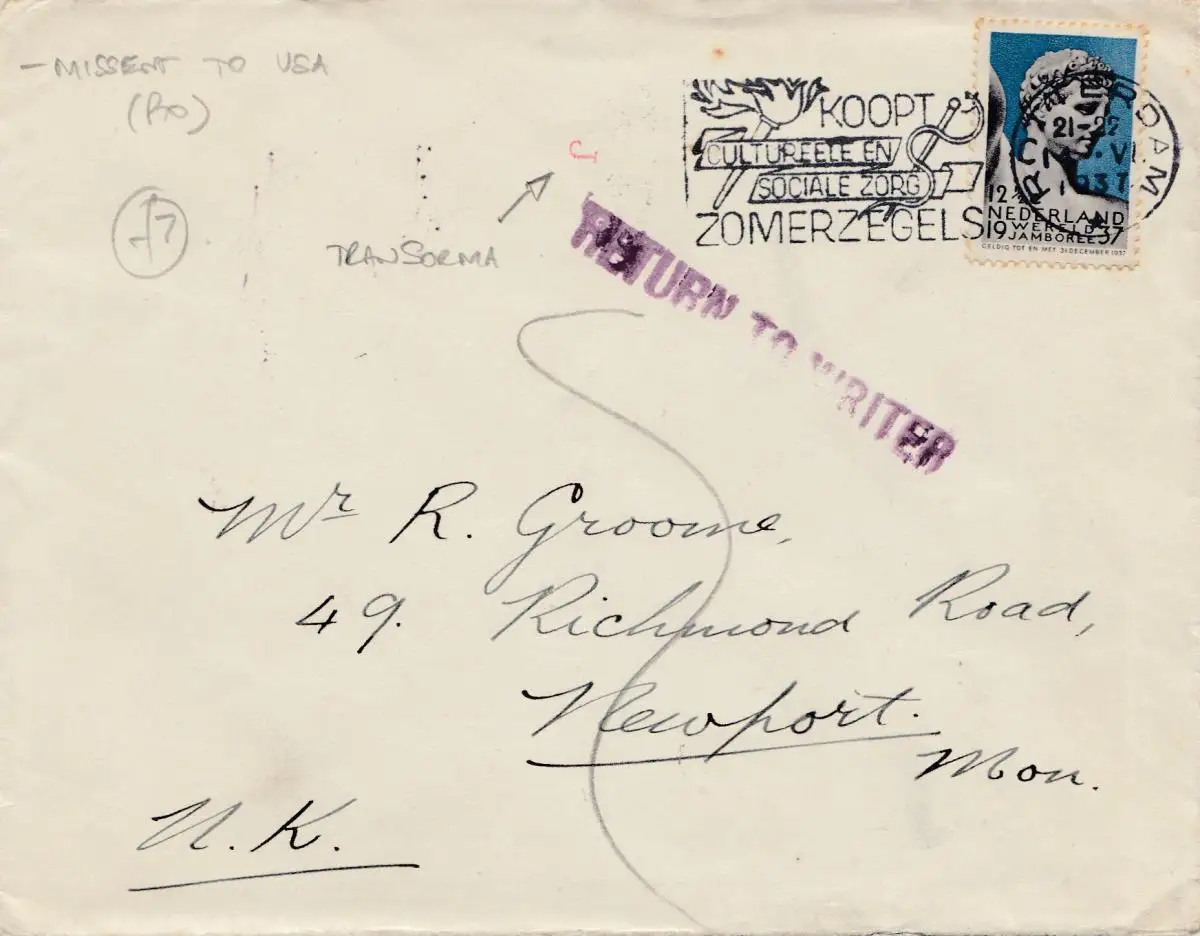 – MISSENT TO USA
(PTO)
TRANSORMA
J
KOOPT
CULTUREELE EN
SOCIALE ZORG
ZOMERZEGELS
21-22
1937
12½
NEDERLAND
WERELD
19 JAMBOREE 37
GELDIG TOT EN MET 31 DECEMBER 1937
RETURN TO WRITER
Mr R. Groome,
49. Richmond Road,
Newport.
Mon.
U.K.